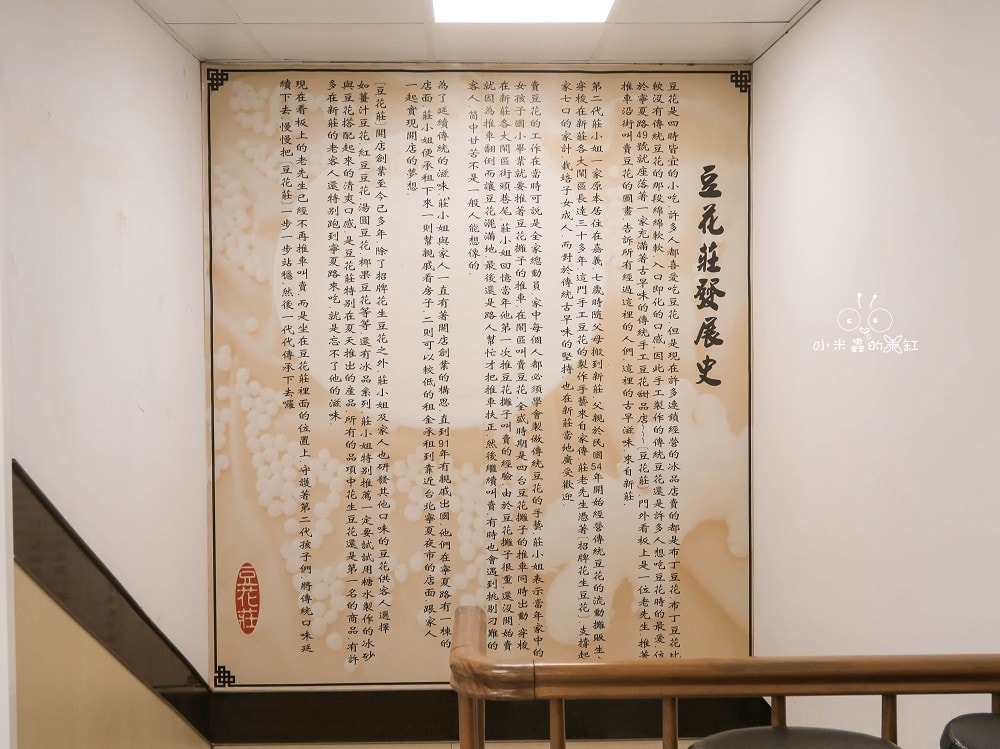 豆花莊發展史
豆花是四時皆宜的小吃，許多人都喜愛吃豆花，但是現在許多連鎖經營的冰品店賣的都是布丁豆花，布丁豆花比
較沒有傳統豆花的那段綿綿軟軟、入口即化的口感，因此手工製作的傳統豆花還是許多人想吃豆花時的最愛，位
於寧夏路49號就座落著一家充滿著古早味的傳統手工豆花甜品店~~〔豆花莊〕，門外看板上是一位老先生，推著
推車沿街叫賣豆花的圖畫，告訴所有經過這裡的人們，這裡的古早滋味，來自新莊．
第二代莊小姐一家原本居住在嘉義，七歲時隨父母搬到新莊，父親於民國54年開始經營傳統豆花的流動攤販生，
穿梭在新莊各大鬧區長達三十多年，這門手工豆花的製作手藝來自家傳，莊老先生憑著〔招牌花生豆花〕支撐起
家七口的家計，栽培子女成人，而對於傳統古早味的堅持，也在新莊當地廣受歡迎．
賣豆花的工作在當時可說是全家總動員，家中每個人都必須學會製做傳統豆花的手藝，莊小姐表示當年家中的
女孩子國小畢業就要推著豆花攤子的推車，在鬧區叫賣豆花，全盛時期是四台豆花攤子的推車同時出動，穿梭
在新莊各大鬧區街頭巷尾，莊小姐回憶當年他第一次推豆花攤子叫賣的經驗，由於豆花攤子很重，還沒開始賣
就因為推車翻倒而讓豆花灑滿地，最後還是路人幫忙才把推車扶正，然後繼續叫賣，有時也會遇到挑剔刁難的
客人，箇中甘苦不是一般人能想像的．
為了延續傳統的滋味，莊小姐與家人一直有著開店創業的構思，直到91年有親戚出國，他們在寧夏路有一棟的
店面，莊小姐便承租下來，一則幫親戚看房子，二則可以較低的租金承租到靠近台北寧夏夜市的店面，跟家人
一起實現開店的夢想．
〔豆花莊〕開店創業至今已多年，除了招牌花生豆花之外，莊小姐及家人也研發其他口味的豆花供客人選擇
如薑汁豆花，紅豆豆花，湯圓豆花，椰果豆花等等，還有冰品系列，莊小姐特別推薦一定要試試用糖水製作的冰砂
與豆花搭配起來的清爽口感，是豆花莊特別在夏天推出的產品，所有的品項中花生豆花還是第一名的商品，有許
多在新莊的老客人還特別跑到寧夏路來吃，就是忘不了他的滋味．
現在看板上的老先生已經不再推車叫賣，而是坐在豆花莊裡面的位置上，守護著第二代孩子們，將傳統口味延
續下去，慢慢把〔豆花莊〕一步一步站穩，然後一代代傳承下去囉
豆花莊
小米蟲的米缸